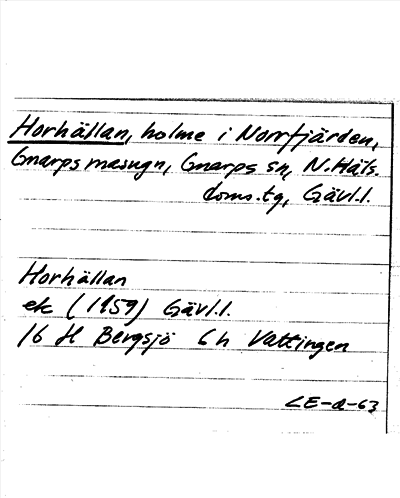 Horhällan, holme i Norrfjärden,
Gnarps masugn, Gnarps sn, N.Häls.
doms.tg, Gävl.l.
Horhällan
ek (1959) Gävl.l.
16 H Bergsjö 6h Vattingen
LE-a-63